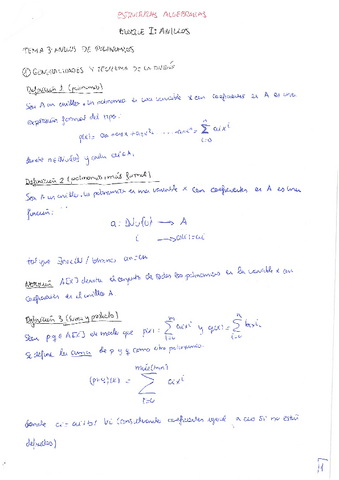 ESTRUCTURAS ALGEBRAICAS
BLOQUE I: ANILLOS
TEMA 3: ANILLOS DE POLINOMIOS
① GENERALIDADES Y TEOREMA DE LA DIVISIÓN
Definición 1 (polinomio)
Sea A un anillo. Un polinomio en una variable x con coeficientes en A es una
expresión formal del tipo:
p(x) = a₀ + a₁x + a₂x² + ... + aₙxⁿ = Σ aᵢxⁱ
donde n ∈ ℕ∪{0} y cada aᵢ ∈ A.
Definición 2 (polinomio más formal)
Sea A un anillo. Un polinomio en una variable x con coeficientes en A es una
función:
a: ℕ∪{0} → A
i → a(i) = aᵢ
tal que
Notación A[x] denota el conjunto de todos los polinomios en la variable x con
coeficientes en el anillo A.
Definición 3 (suma y producto)
Sean p, q ∈ A[x] de modo que p(x) = Σ aᵢxⁱ y q(x) = Σ bᵢxⁱ.
Se define la suma de p y q como otro polinomio:
(p+q)(x) = Σ cᵢxⁱ
donde cᵢ = aᵢ + bᵢ (considerando coeficientes igual a cero si no están
definidos)